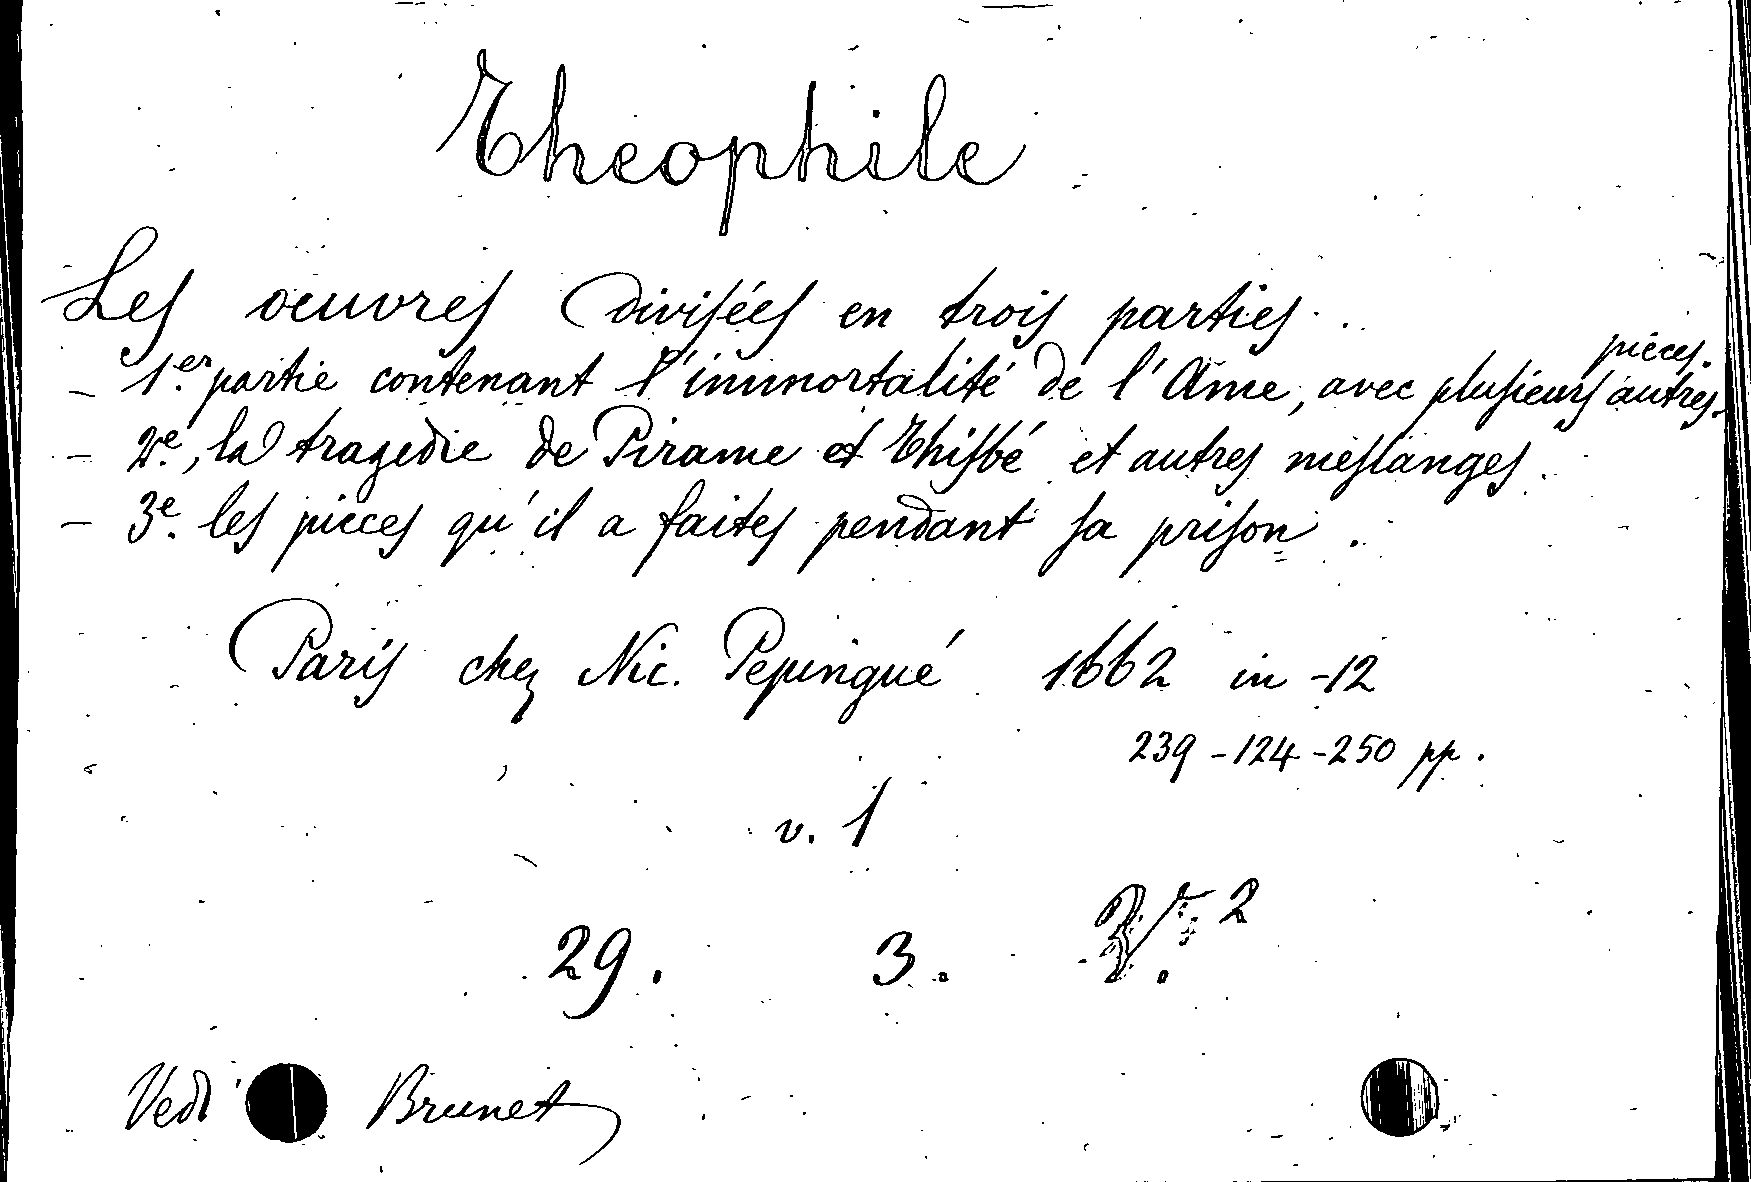 Theophile
Les oeuvres divisées en trois parties.
- 1.er partie contenant l'immortalité de l'Ame, avec plusieurs autres pièces.
- 2.e, la tragedie de Pirame et Thisbé et autres meslanges.
- 3e. les pieces qu'il a faites pendant sa prison.
Paris chez Nic. Pepingué 1662 in-12
239-124-250 pp.
v. 1
29. 3. 2
Vedi Brunet